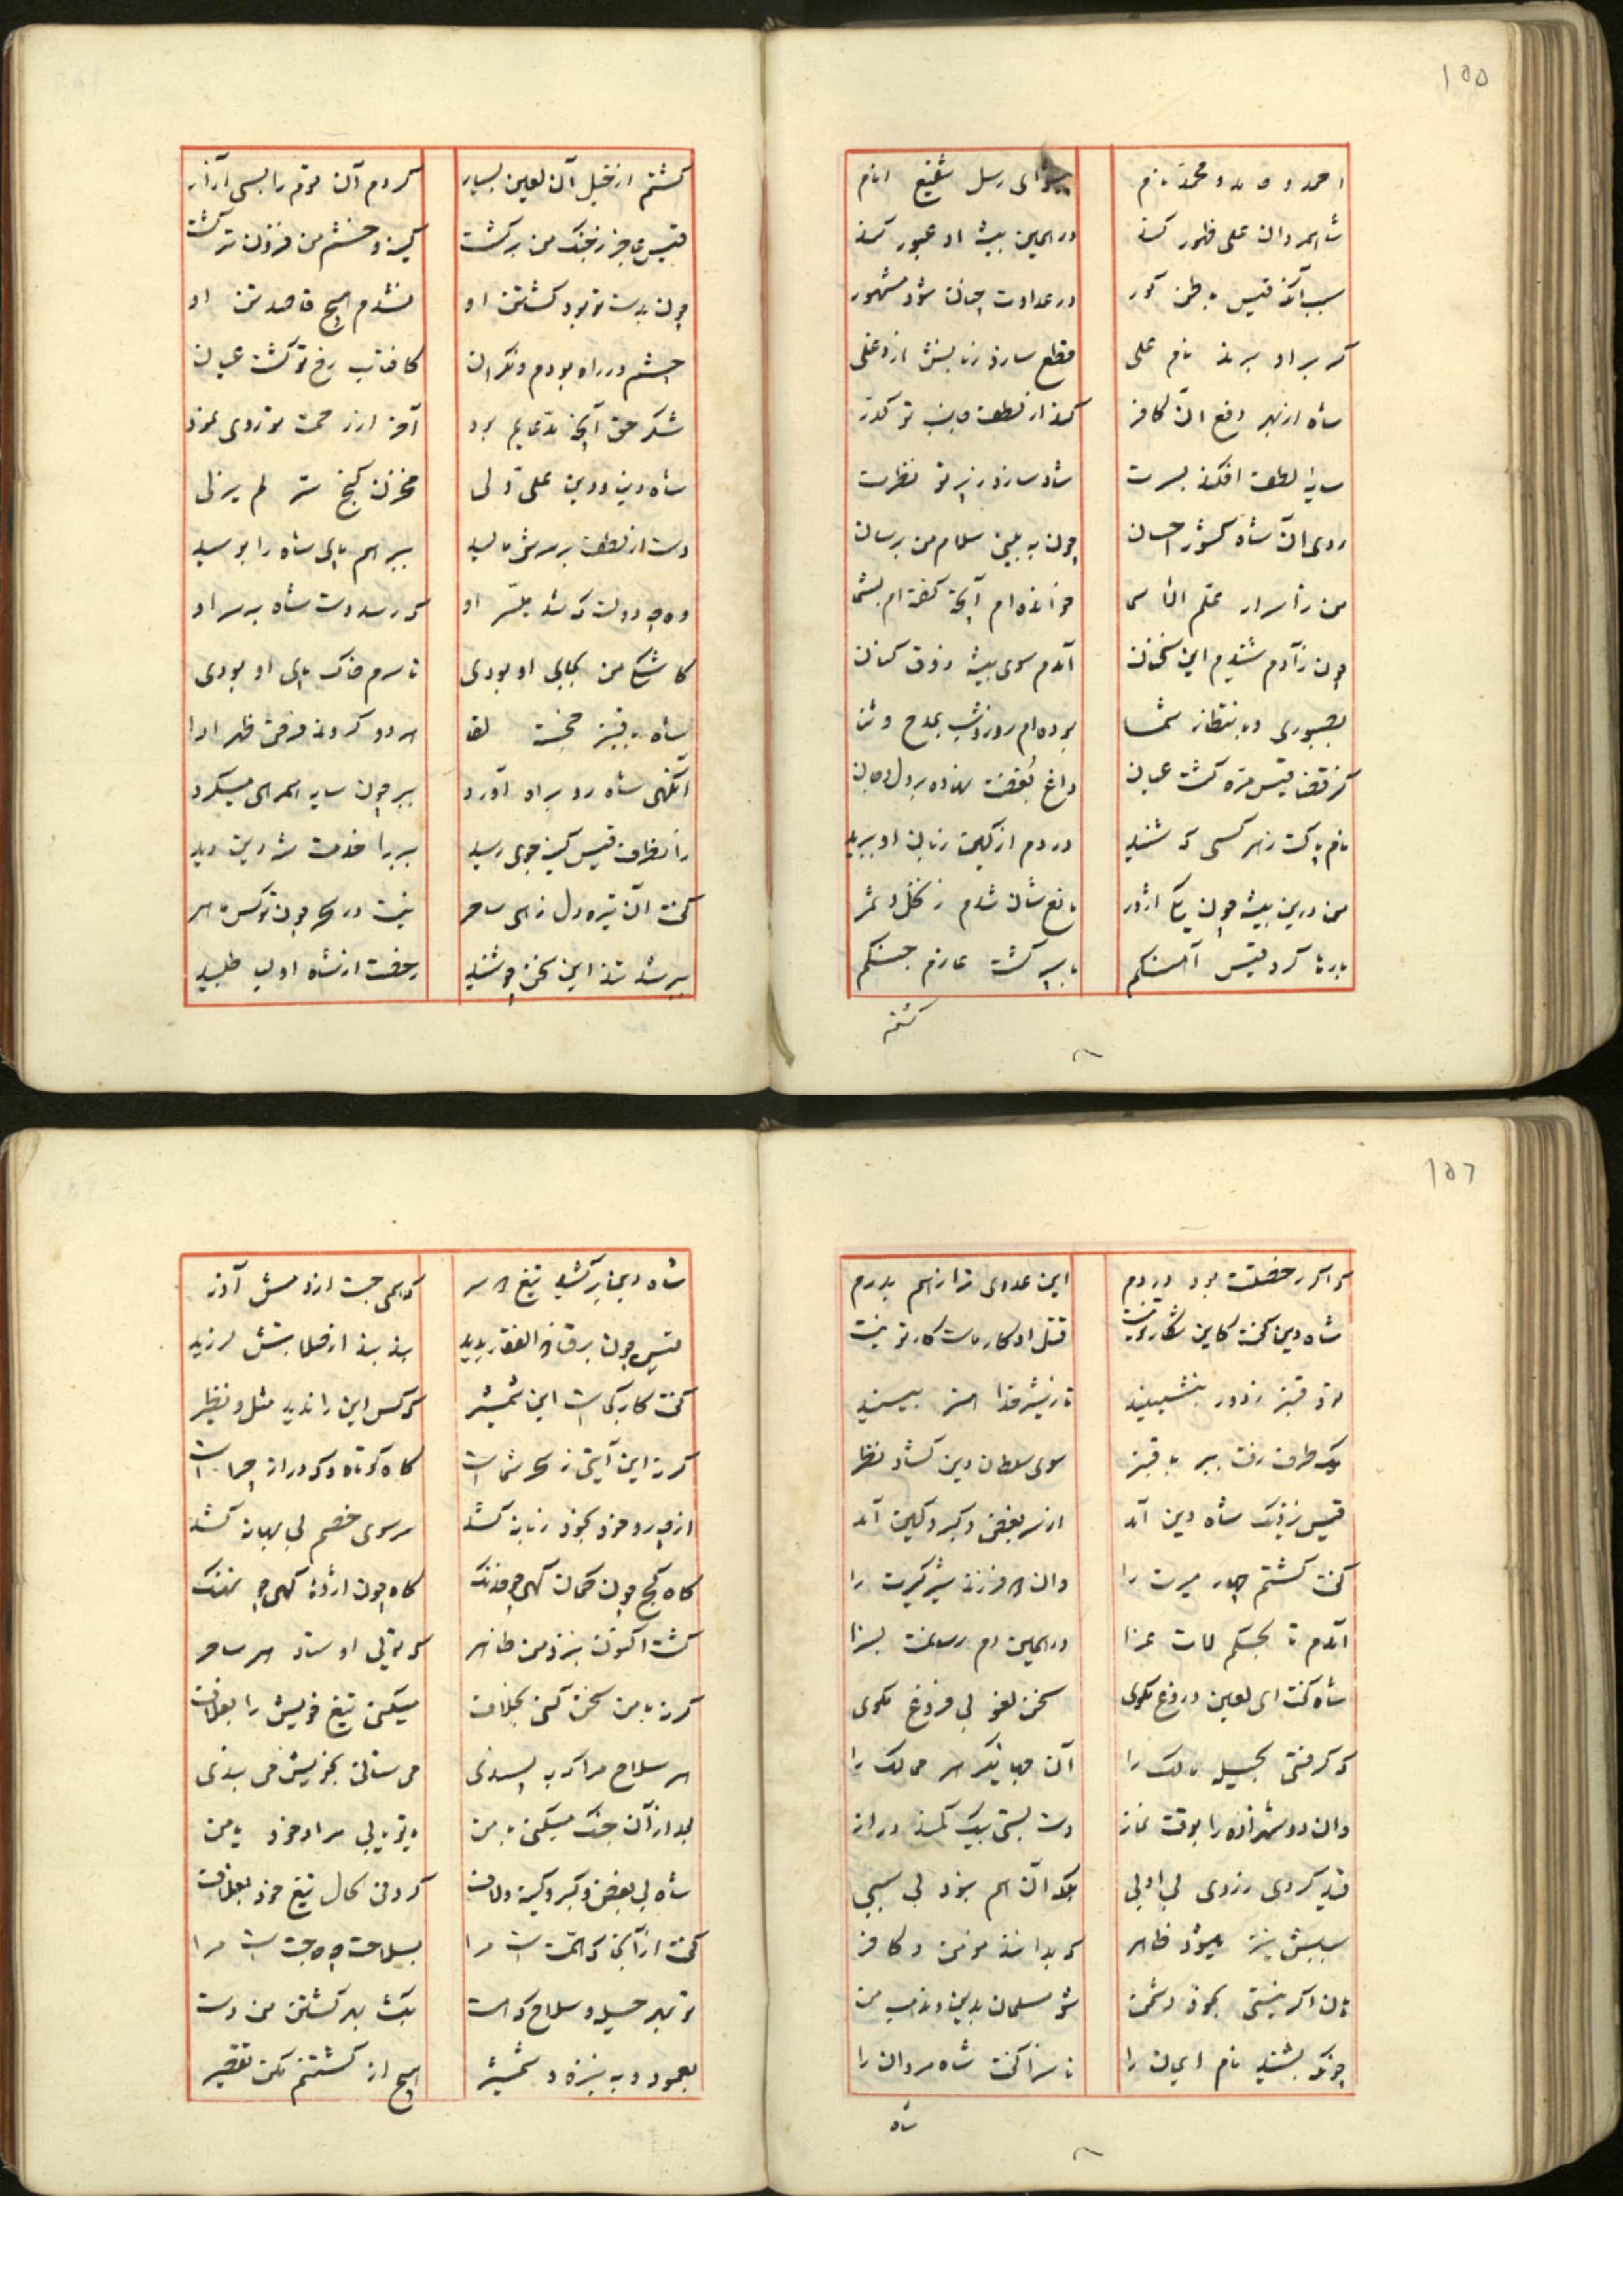 ۱۵۵
احمد و حامد و محمد نام
پیشوای رسل شفیع انام
شاهمردان علی ظهور کند
در همین بیشه او عبور کند
سبب آنکه قیس باطن کور
در عداوت چنان شود مشهور
که بر او برند نام علی
قطع سازد زبانش از دغلی
شاه از بهر دفع آن کافر
کند از لطف جانب تو گذر
سایه لطف افکند بسرت
شاد سازد ز پرتو نظرت
روی آن شاه کشور احسان
چون به بینی سلام من برسان
من ز اسرار علم الاسما
خوانده‌ام آنچه گفته‌ام بشما
چون ز آدم شنیدم این سخنان
آمدم سوی بیشه ذوق کنان
بصبوری و بانتظار شما
بوده‌ام روز و شب بمدح و ثنا
کز قضا قیس تیره گشت عیان
داغ بغضت نهاده بر دل و جان
نام پاکت ز هر کسی که شنید
در دم از کین زبان او ببرید
من درین بیشه چون یکی اژدر
مانع شان شدم ز نخل و ثمر
بارها کرد قیس آهنگم
با سپه گشت عازم جنگم
کشتم
کشتم از خیل آن لعین بسیار
کردم آن قوم را بسی آزار
قیس عاجز ز جنگ من برگشت
کینه و خشم من فزون تر گشت
چون بدست تو بود کشتن او
نشدم هیچ قاصد تن او
چشم در راه بودم و نگران
کافتاب رخ تو گشت عیان
شکر حق آنچه مدعایم بود
آخر از رحمت تو روی نمود
شاه دین و دین علی ولی
مخزن گنج سر لم یزلی
دست از لطف بر سرش مالید
ببر هم پای شاه را بوسید
وه چه دولت که شد میسر او
که رسد دست شاه بر سر او
کاشکی من بجای او بودی
تا سرم خاک پای او بودی
شاه با قنبر خجسته لقا
هر دو کردند فرض ظهر ادا
آنگهی شاه رو براه آورد
ببر چون سایه همرهی میکرد
زانطرف قیس کینه جوی رسید
ببر را خدمت شه دین دید
گفت آن تیره دل زهی ساحر
نیست در سحر چون تو کس ماهر
ببر شد تند این سخن چو شنید
رخصت از شاه اولیا طلبید
۱۵۶
که اگر رخصتت بود در دم
این عدوی ترا ز هم بدرم
شاه دین گفت کاین شکار تو نیست
قتل او کار ماست کار تو نیست
تو و قنبر ز دور بنشینید
تا ز شیر خدا هنر بینید
یک طرف رفت ببر با قنبر
سوی سلطان دین گشاد نظر
قیس نزدیک شاه دین آمد
از سر بغض و کبر و کین آمد
گفت کشتم چهار میرت را
وان دو فرزند شیر گیرت را
آمدم تا بحکم لات عزا
در همین دم رسانمت بسزا
شاه گفت ای لعین دروغ مگوی
سخن لغو بی فروغ مگوی
که گرفتی بحیله مالک را
آن جهانگیر هر ممالک را
وان دو شهزاده را بوقت نماز
دست بستی بیک کمند دراز
قید کردی ز روی بی ادبی
بلکه آن هم نبود بی سببی
سببش نیز میشود ظاهر
که بدانند مومن و کافر
هان اگر نیستی بخود دشمن
شو مسلمان بدین و مذهب من
چونکه بشنید نام ایمان را
ناسزا گفت شاه مردان را
شاه
شاه دین برکشید تیغ دو سر
که همی جست از دمش آذر
قیس چون برق ذوالفقار بدید
بند بند از صلابتش لرزید
گفت کار کجاست این شمشیر
که کس این را ندید مثل و نظیر
گر نه این آیتی ز سحر شماست
گاه کوتاه و گه دراز چراست
از چه رو خود بخود زبانه کشد
سر سوی خصم بی بهانه کشد
گاه کج چون کمان گهی چو خدنگ
گاه چون اژدها گهی چو نهنگ
گشت اکنون بنزد من ظاهر
که تویی اوستاد هر ساحر
گر نه با من سخن کنی بخلاف
میکنی تیغ خویش را بغلاف
هر سلاح مرا که بپسندی
می ستانی بخویش می بندی
بعد از آن جنگ میکنی با من
یا تو یابی مراد خود یا من
شاه بی بغض و کبر و کینه و لاف
کرد فی الحال تیغ خود بغلاف
گفت از آنجا که همت است مرا
بسلاحت چه حاجت است مرا
تو بهر حیله و سلاح که هست
بگشا بهر کشتن من دست
بعمود و به نیزه و شمشیر
هیچ از کشتنم مکن تقصیر